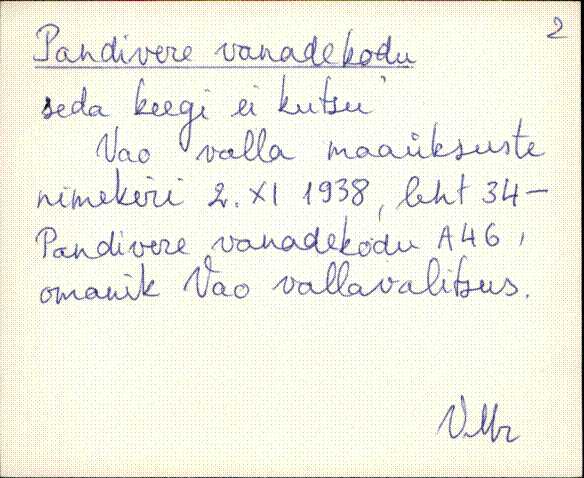 2
Pandivere vanadekodu
seda keegi ei kutsu
Vao valla maaüksuste
nimekiri 2. XI 1938, leht 34 –
Pandivere vanadekodu A46,
omanik Vao vallavalitsus.